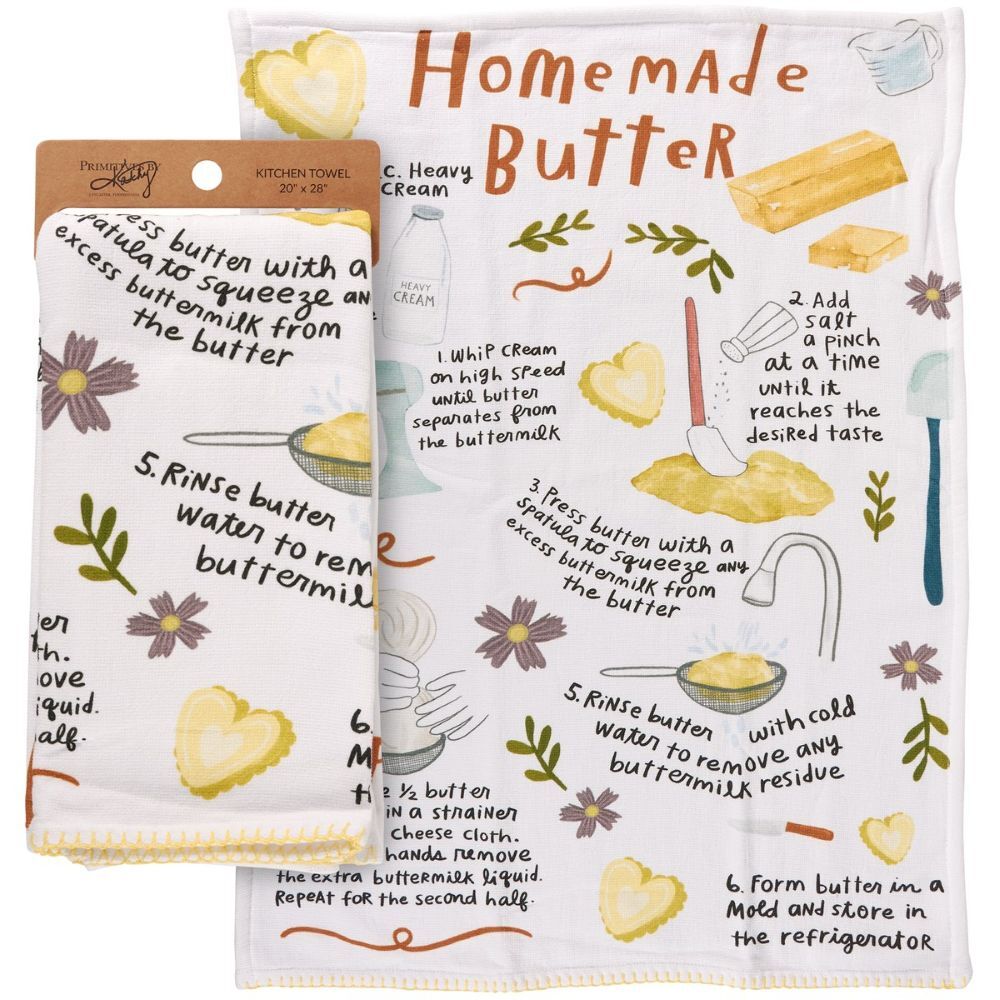 PRIMITIVES BY
Kathy
KITCHEN TOWEL
20" x 28"
ess butter with a
patula to squeeze an
excess buttermilk from
the butter
5. Rinse butter
water to rem
buttermil
er
th.
ove
iquid.
alf.
6.
M
th
Homemade
Butter
.C. Heavy
Cream
HEAVY
CREAM
1. Whip cream
on high speed
until butter
separates from
the buttermilk
2. Add
salt
a pinch
at a time
until it
reaches the
desired taste
3. Press butter with a
spatula to squeeze any
excess buttermilk from
the butter
5. Rinse butter with cold
water to remove any
buttermilk residue
e ½ butter
in a strainer
cheese cloth.
hands remove
the extra buttermilk liquid.
Repeat for the second half.
6. Form butter in a
Mold and store in
the refrigerator